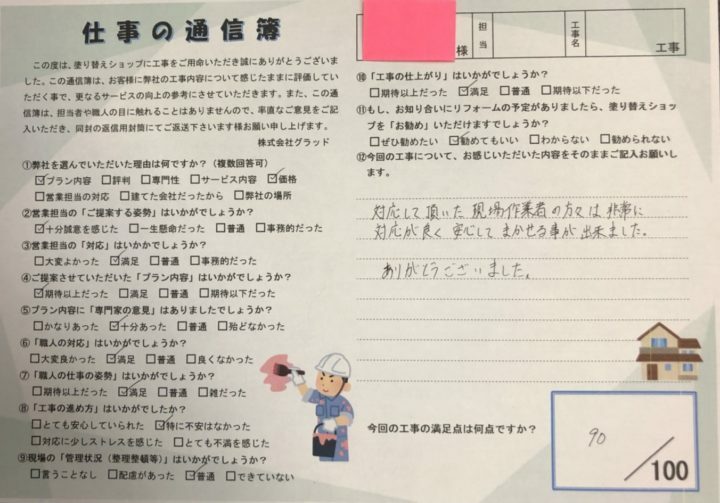 仕事の通信簿
この度は、塗り替えショップに工事をご用命いただき誠にありがとうございま
した。この通信簿は、お客様に弊社の工事内容について感じたままに評価してい
ただく事で、更なるサービスの向上の参考にさせていただきます。また、この通
信簿は、担当者や職人の目に触れることはありませんので、率直なご意見をご記
入いただき、同封の返信用封筒にてご返送下さいます様お願い申し上げます。
株式会社グラッド
①弊社を選んでいただいた理由は何ですか？（複数回答可）
☑プラン内容 □評判 □専門性 □サービス内容 ☑価格
□営業担当の対応 □建てた会社だったから □弊社の場所
②営業担当の「ご提案する姿勢」はいかがでしょうか？
☑十分誠意を感じた □一生懸命だった □普通 □事務的だった
③営業担当の「対応」はいかかでしょうか？
□大変よかった ☑満足 □普通 □事務的だった
④ご提案させていただいた「プラン内容」はいかがでしょうか？
☑期待以上だった □満足 □普通 □期待以下だった
⑤プラン内容に「専門家の意見」はありましたでしょうか？
□かなりあった ☑十分あった □普通 □殆どなかった
⑥「職人の対応」はいかがでしょうか？
□大変良かった ☑満足 □普通 □良くなかった
⑦「職人の仕事の姿勢」はいかがでしょうか？
□期待以上だった ☑満足 □普通 □雑だった
⑧「工事の進め方」はいかがでしたか？
□とても安心していられた ☑特に不安はなかった
□対応に少しストレスを感じた □とても不満を感じた
⑨現場の「管理状況（整理整頓等）」はいかがでしょうか？
□言うことなし □配慮があった ☑普通 □できていない
様 担当 工事名 工事
⑩「工事の仕上がり」はいかがでしょうか？
□期待以上だった ☑満足 □普通 □期待以下だった
⑪もし、お知り合いにリフォームの予定がありましたら、塗り替えショッ
プを「お勧め」いただけますでしょうか？
□ぜひ勧めたい ☑勧めてもいい □わからない □勧められない
⑫今回の工事について、お感じいただいた内容をそのままご記入お願いし
ます。
対応して頂いた現場作業者の方々は非常に
対応が良く安心してまかせる事が出来ました。
ありがとうございました。
今回の工事の満足点は何点ですか？
90
/100